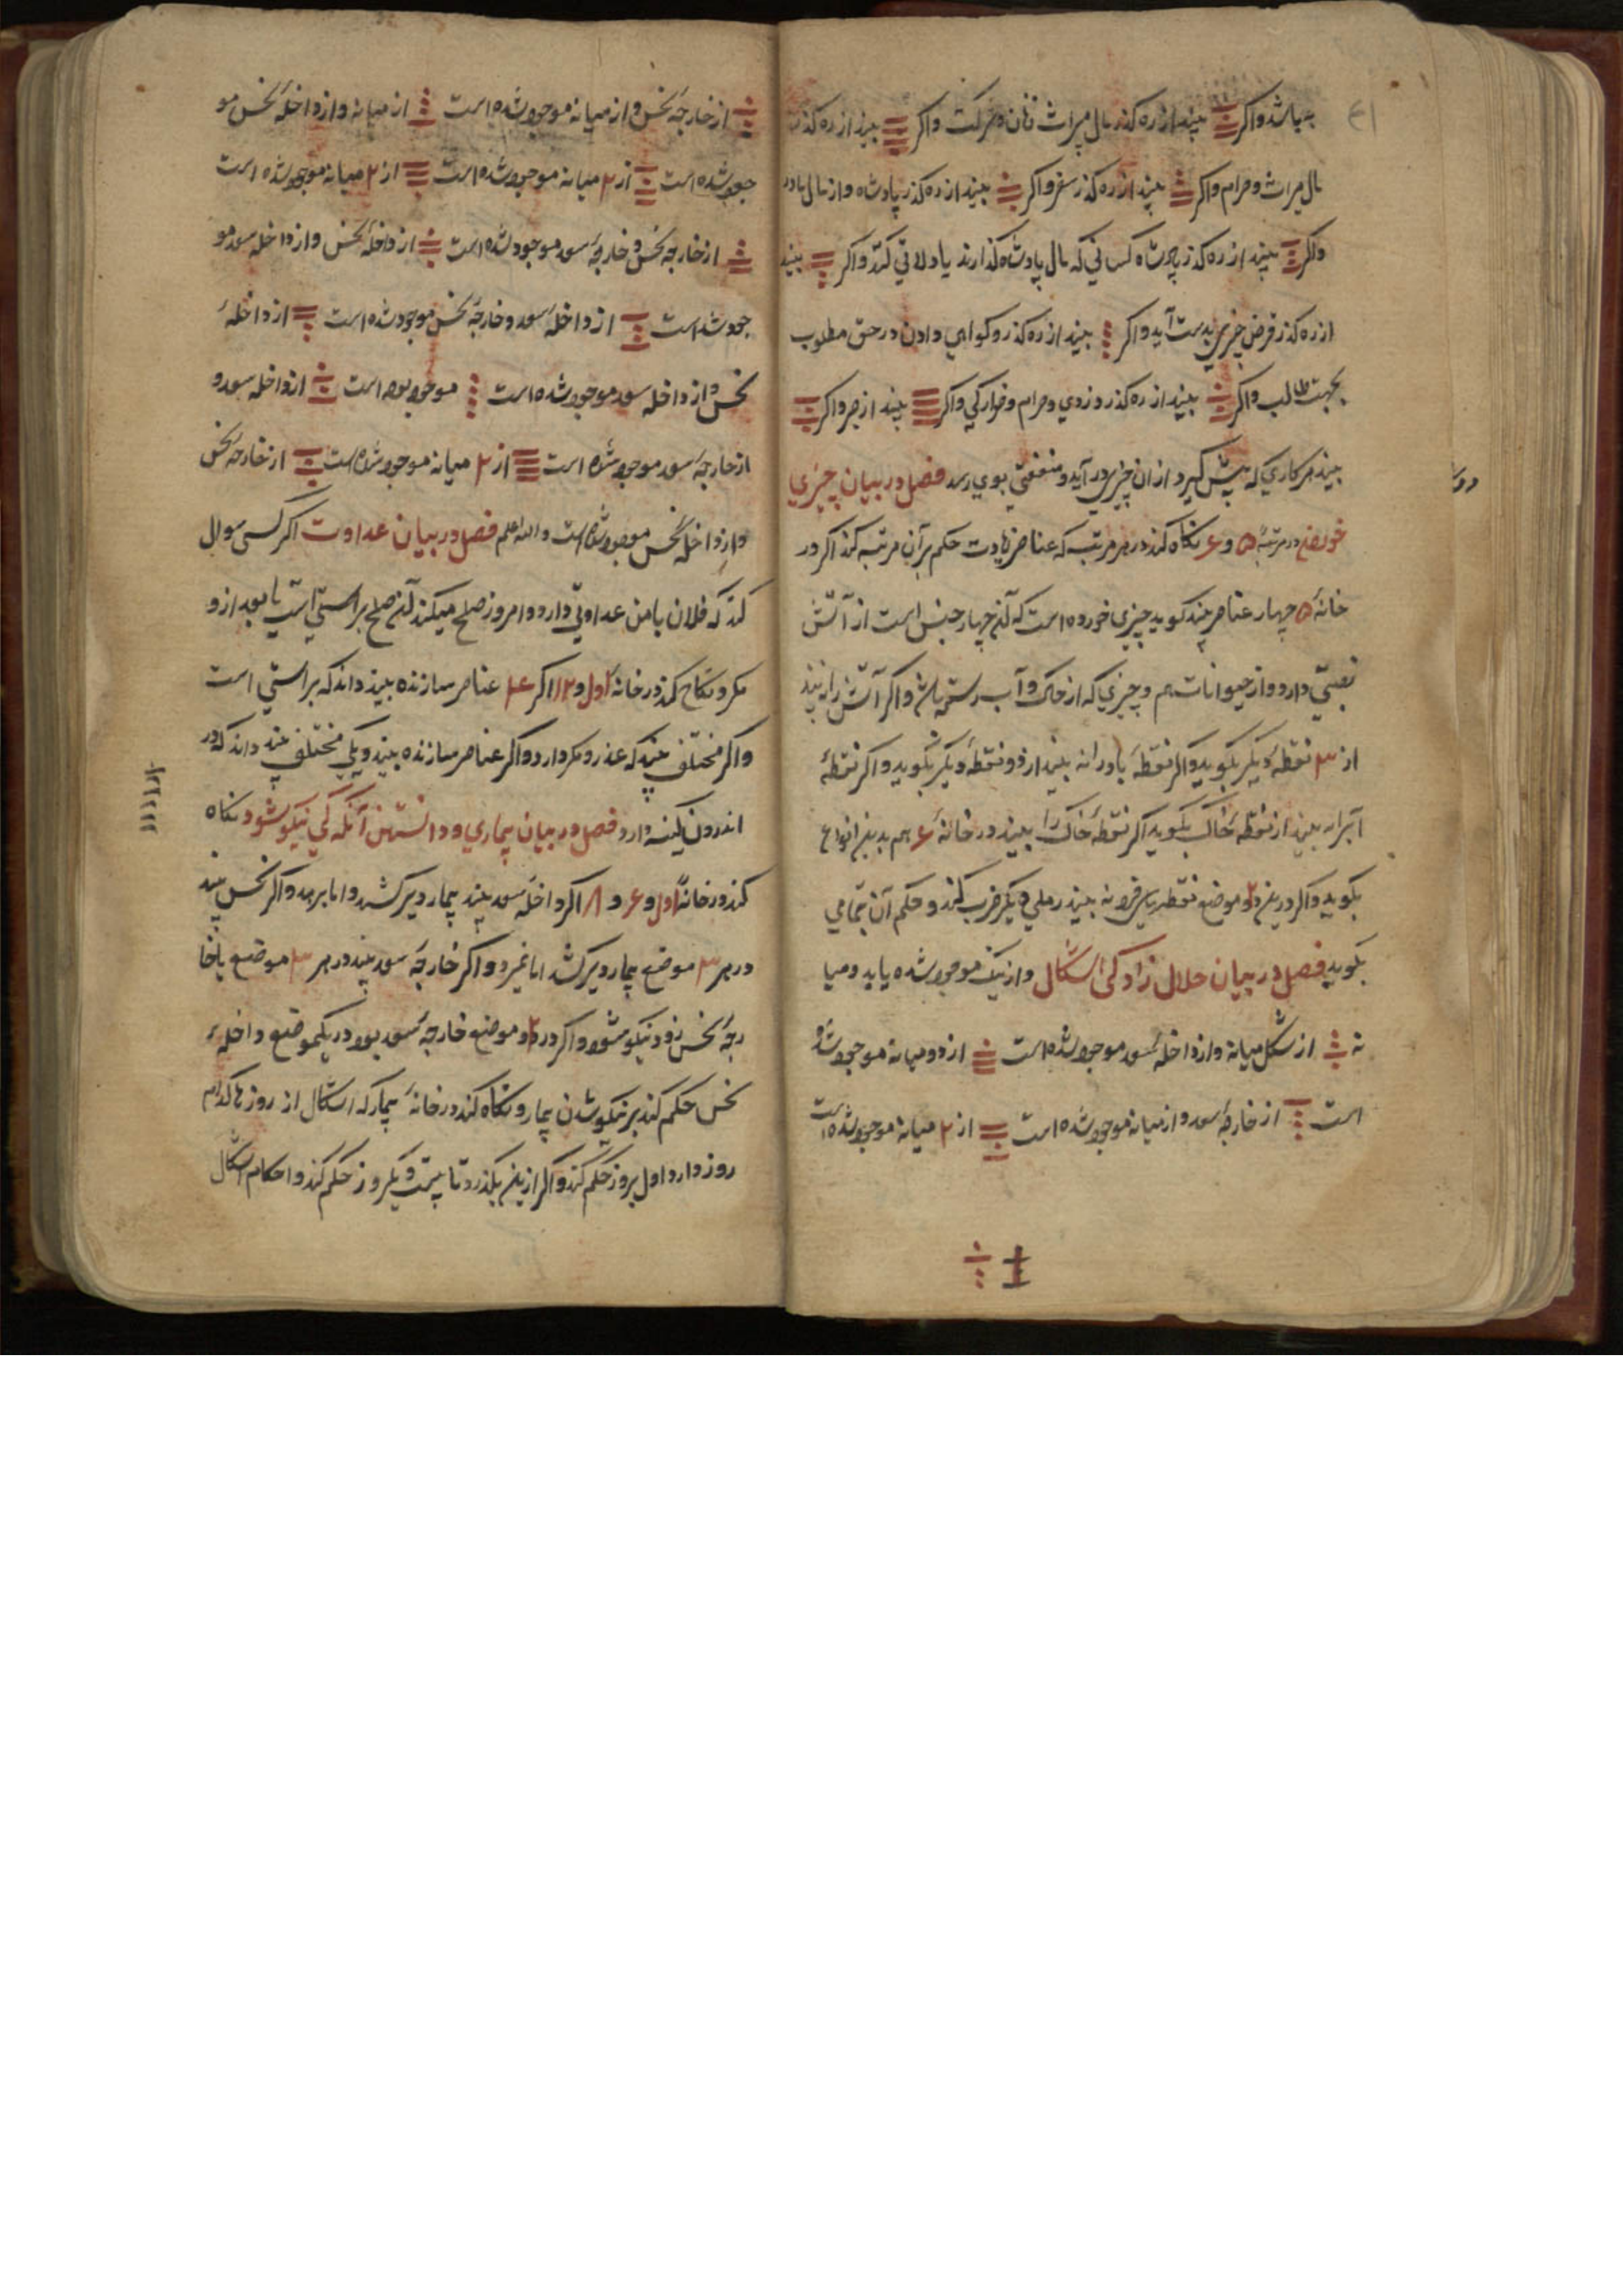 بیند از ره کذر مال میراث زنان و شرکت واکر بیند از ره کذر
مال میراث و حرام واکر بیند از ره کذر سفر واکر بیند از ره کذر پادشاه و از مال مادر
واکر بیند از ره کذر پادشاه کسانی که مال پادشاه کذارند یا ولاتی کند واکر بیند
از ره کذر قرض چیزی بدست آید واکر بیند از ره کذر و کواهی دادن در حق مطلوب
بجهت طالب واکر بیند از ره کذر دزدی و حرام و خوارکی واکر بیند از جر واکر
بیند هر کاری که پیش کیرد از ان چیزی در آید و منفعتی بوی رسد فصل در بیان چیزی
در مرتبهٔ ۵ و ۶ نکاه کند در هر مرتبه که عناصر زیادت حکم بر آن مرتبه کند اکر در
خانهٔ ۵ چهار عناصر بیند کوید چیزی خورده است که آن چهار جنس است از آتش
نصیبی دارد و از حیوانات هم و چیزی که از خاک و آب رسته باشد واکر آتش را نه بیند
از ۳ نقطهٔ دیکر بکوید واکر نقطهٔ باد را نه بیند از دو نقطهٔ دیکر بکوید واکر نقطهٔ
آبرا نه بیند از نقطهٔ خاک بکوید اکر نقطهٔ خاک را بیند در خانهٔ ۶ هم بدین انواع
بکوید واکر درین ۲ موضع نقطه بیند رملی دیکر ضرب کند و حکم آن بتمامی
بکوید فصل در بیان حلال زادکی اشکال و از یک موجود شده یابد و میا
نه از شکل میانه و از داخلهٔ سعد موجود شده است از دو میانه موجود شده
است از خارجهٔ سعد و از میانه موجود شده است از ۲ میانه موجود شده است
از خارجهٔ نحس و از میانه موجود شده است از میانه و از داخلهٔ نحس مو
جود شده است از ۲ میانه موجود شده است از ۲ میانه موجود شده است
از خارجه نحس و خارجهٔ سعد موجود شده است از داخلهٔ نحس و از داخله سعد مو
جود شده است از داخلهٔ سعد و خارجهٔ نحس موجود شده است از داخلهٔ
نحس و از داخله سعد موجود شده است موجود بوده است از داخله سعد و
از خارجهٔ سعد موجود شده است از ۲ میانه موجود شده است از خارجه نحس
و از داخلهٔ نحس موجود شده است والله اعلم فصل در بیان عداوت اکر کسی سوال
کند که فلان با من عداوتی دارد و امروز صلح میکند آن صلح براستی است یا بعد از و
مکر و نکاح کند در خانه اول و ۱۲ اکر ۴ عناصر سازنده بیند داند که براستی است
واکر مختلف بیند که عذر و مکر دارد واکر عناصر سازنده بیند و یکی مختلف بیند داند که در
اندرون کینه دارد فصل در بیان بیماری و دانستن آنکه کی نیکو شود نکاه
کند در خانهٔ اول و ۶ و ۸ اکر داخلهٔ سعد بیند بیمار دیر کشد و اما برهد واکر نحس بیند
در هر ۳ موضع بیمار دیر کشد اما نمیرد واکر خارجهٔ سعد بیند در هر ۳ موضع یا خا
رجهٔ نحس زود نیکو شود واکر در ۲ موضع خارجهٔ سعد بود در یکموضع داخلهٔ
نحس حکم کند بر نیکو شدن بیمار و نکاه کند در خانهٔ بیمار که اشکال از روزها کدام
روز دارد اول بروز حکم کند واکر ازین بکذرد تا بیست و یکروز حکم کند و احکام اشکال